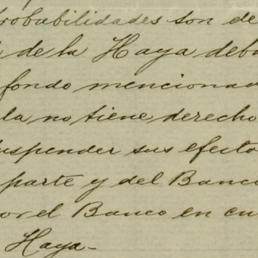 probabilidades son de
de la Haya deb
fondo mencionad
la no tiene derecho
uspender sus efecto
parte y del Banc
or el Banco en cu
Haya-